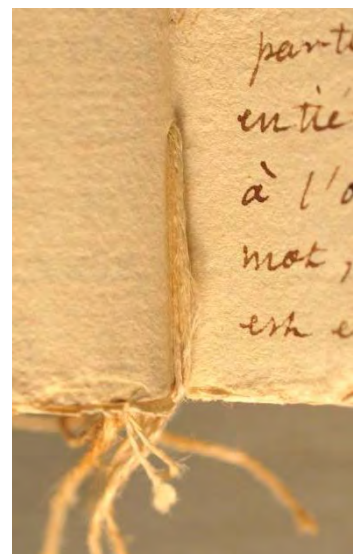 parti
entié
à l'o
mot,
est e